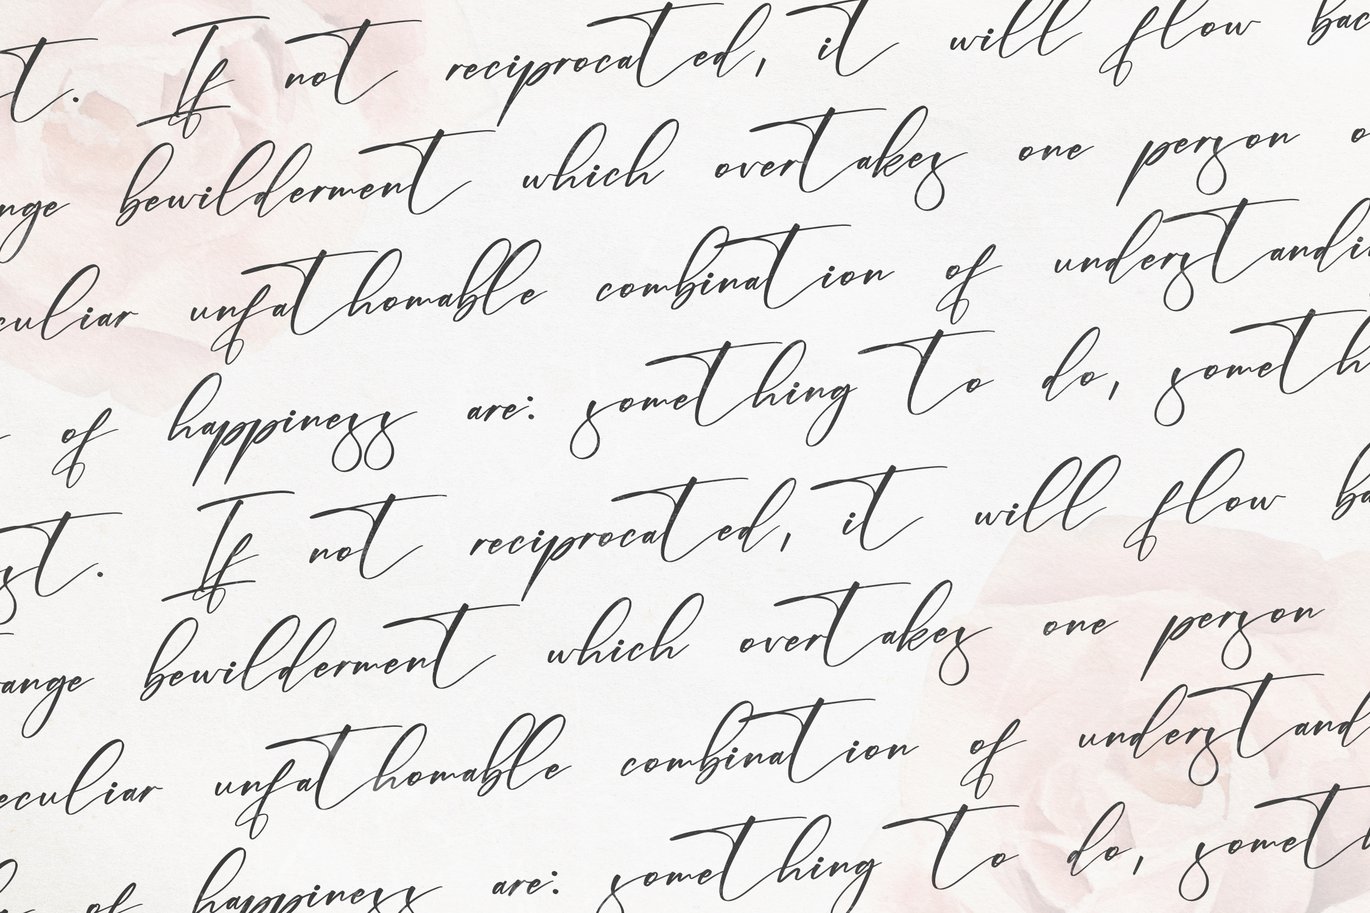 t. If not reciprocated, it will flow bac
nge bewilderment which overtakes one person o
culiar unfathomable combination of understandi
of happiness are: something to do, someth
st. If not reciprocated, it will flow ba
ange bewilderment which overtakes one person
eculiar unfathomable combination of understand
of happiness are: something to do, someth